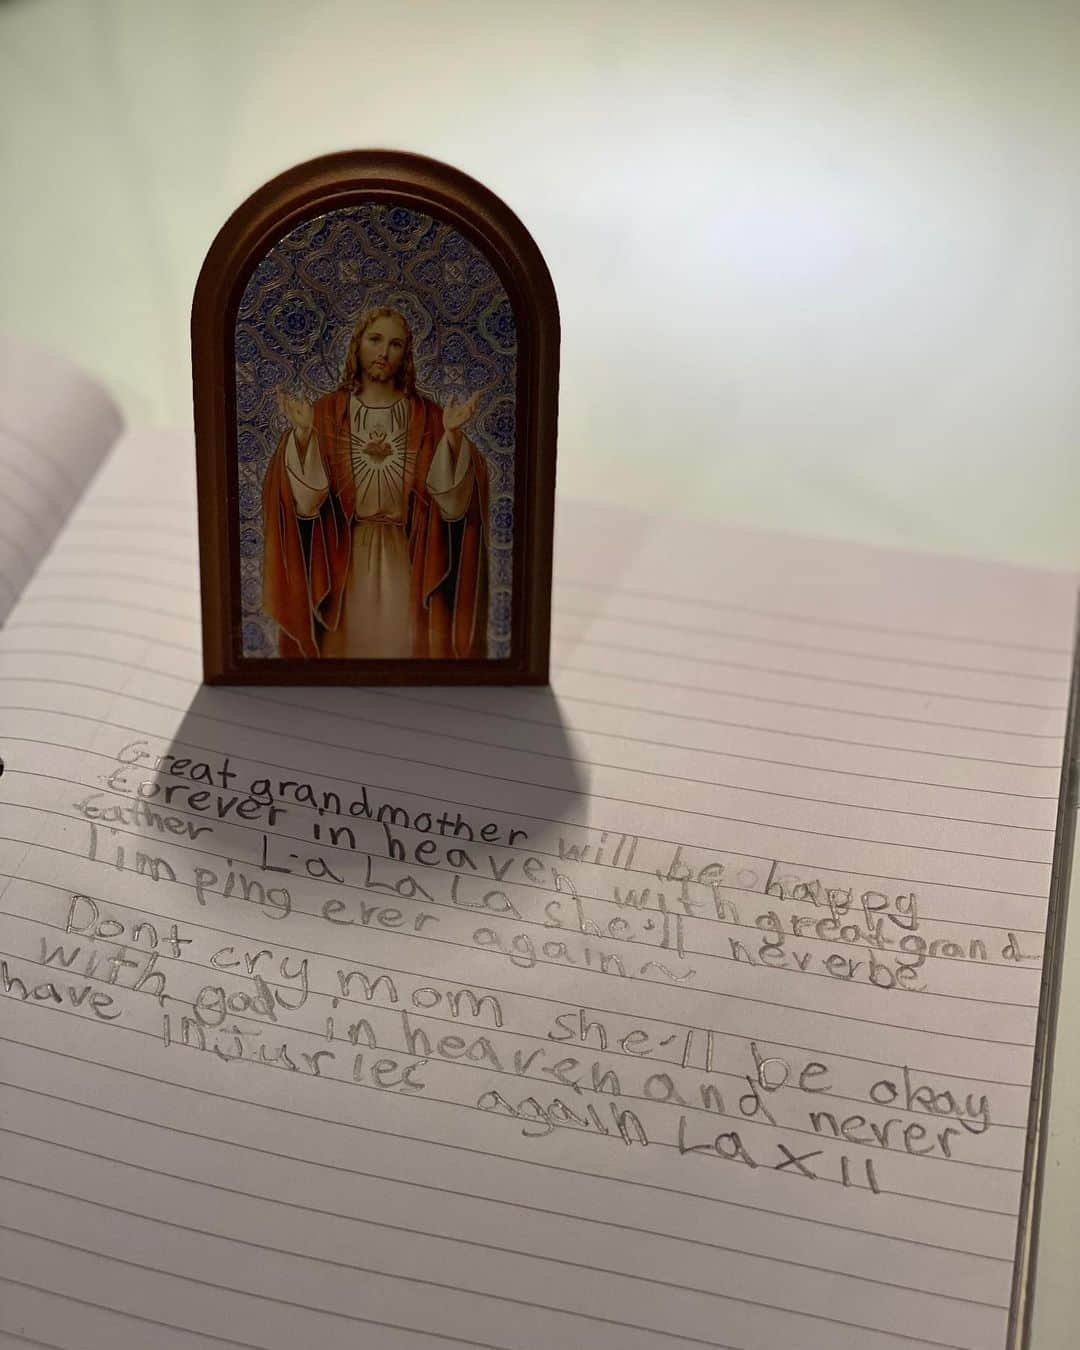 Great grandmother will be happy
forever in heaven with great grand
father La La La she'll never be
limping ever again~
Dont cry mom she'll be okay
with god in heaven and never
have injuries again La X 11